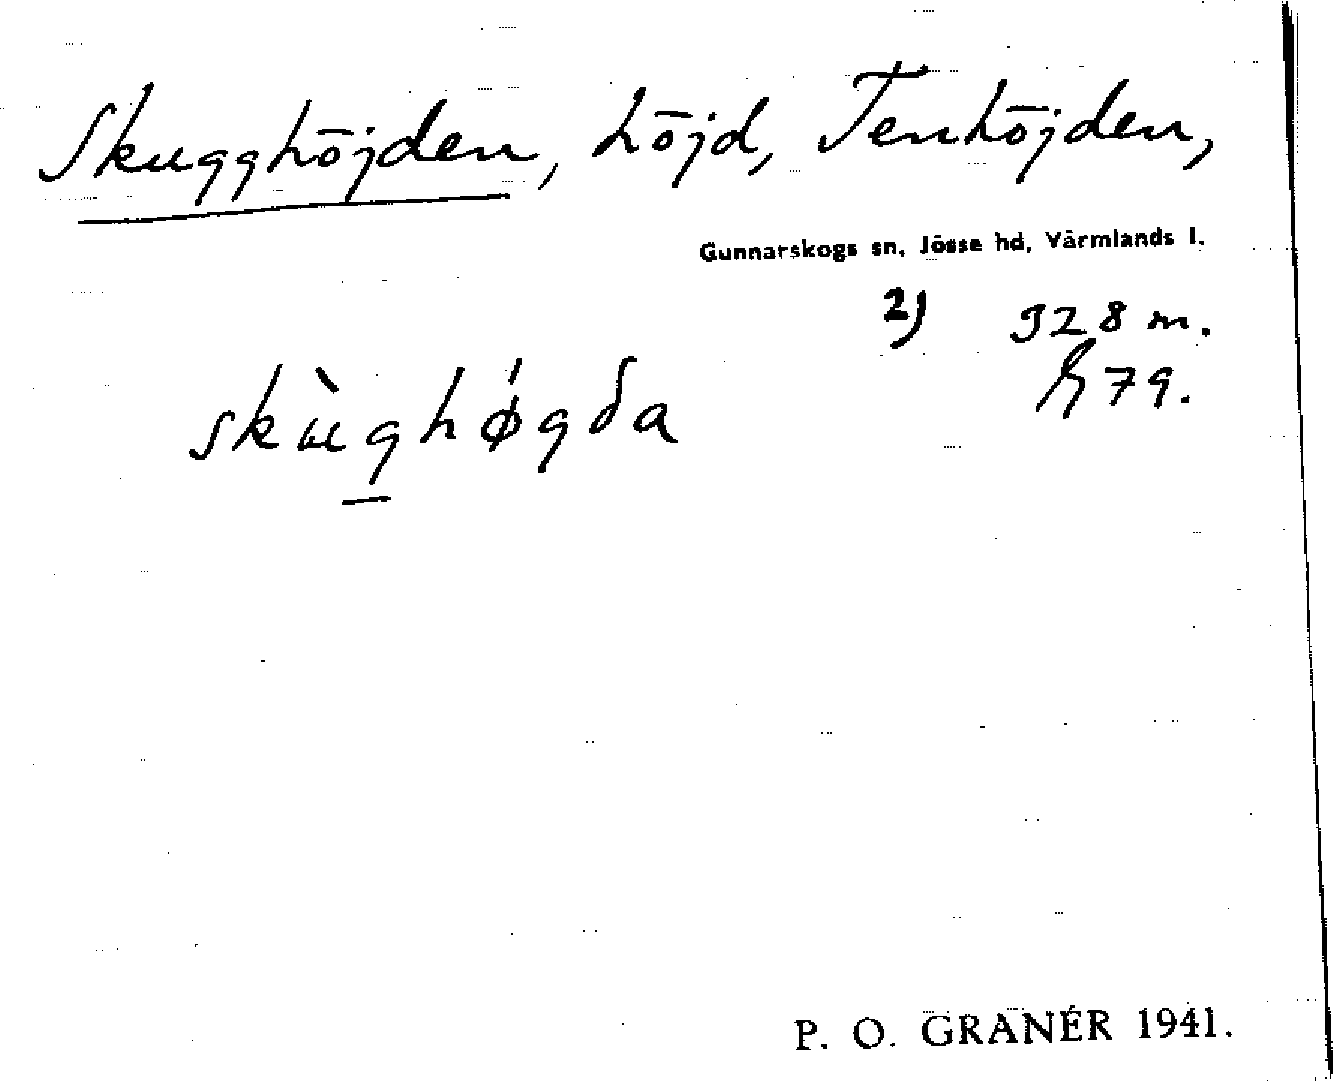 Skugghöjden, höjd, Tenhöjden,
Gunnarskogs sn, Jösse hd, Värmlands l.
2) 328 m.
79.
skùghøgda
P. O. GRANÉR 1941.